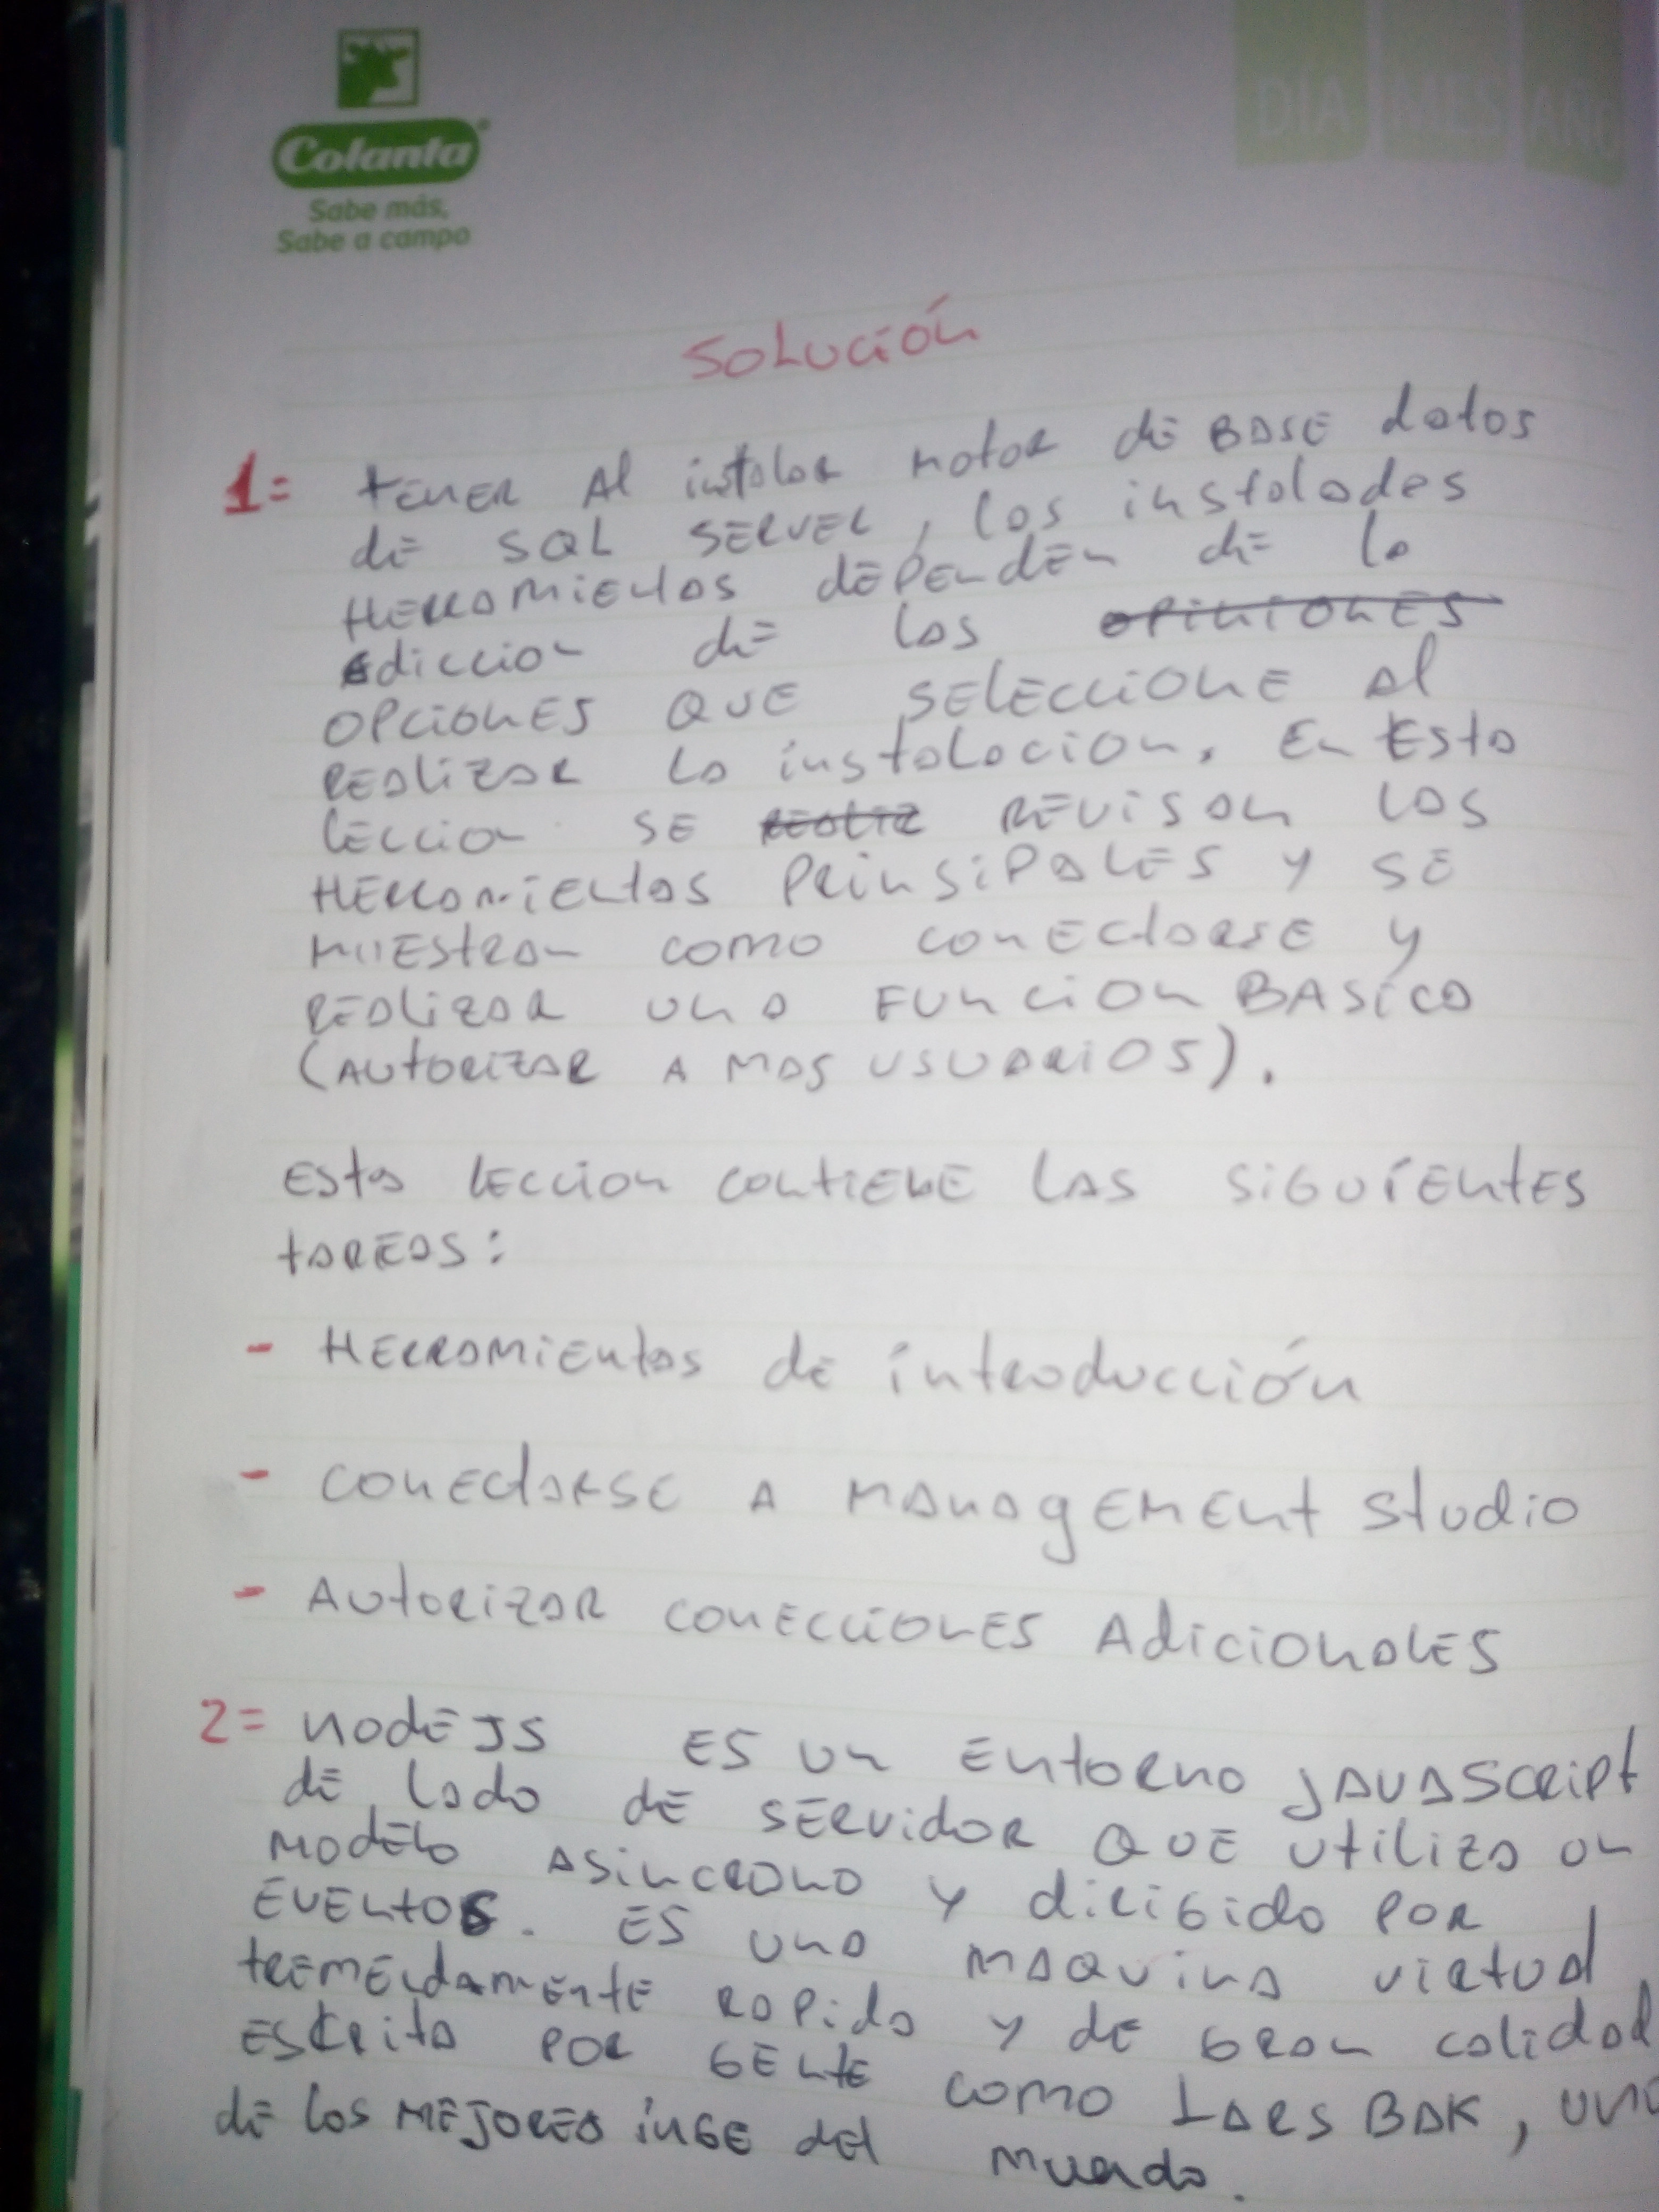 Colanta
Sabe más,
Sabe a campo
DÍA MES AÑO
Solución
1= tener Al instalar motor de BASE datos
de SQL SERVER, las instalades
HERRAMIENTAS dEPENdEn de la
Ediccion de las opiniones
OPCiONES QUE SELECCIONE Al
REALIZAR La instalacion. En Esta
LEccion SE REALIZ REVISAN LAS
HERRAMIENTAS PRINSIPALES Y SE
MUEStRAn COMO CONECTARSE Y
REALIZAR UNA FUNCION BASICA
(AUTORIZAR A MAS USUARIOS).
Esta LECCION CONTIENE LAS SIGUIENTES
TAREAS:
- HERRAMIENTAS de introducción
- CONECTARSE A MANAgEMENt Studio
- AUTORIZAR CONECCIONES AdICIONALES
2= NodEJS ES Un ENTORNO JAVASCRIPt
dE Lado dE SERVidOR QUE UtiLiza un
MODELO ASINCRONO Y diRiGido POR
EVENTOS. ES UNA MAQUINA VIRTUAL
tREMENdAMENTE RAPida Y dE GRAN calidad
ESCRITA POR GENTE COMO LARS BAK, UNO
dE Los MEJORES INGE dEl MUNdo.